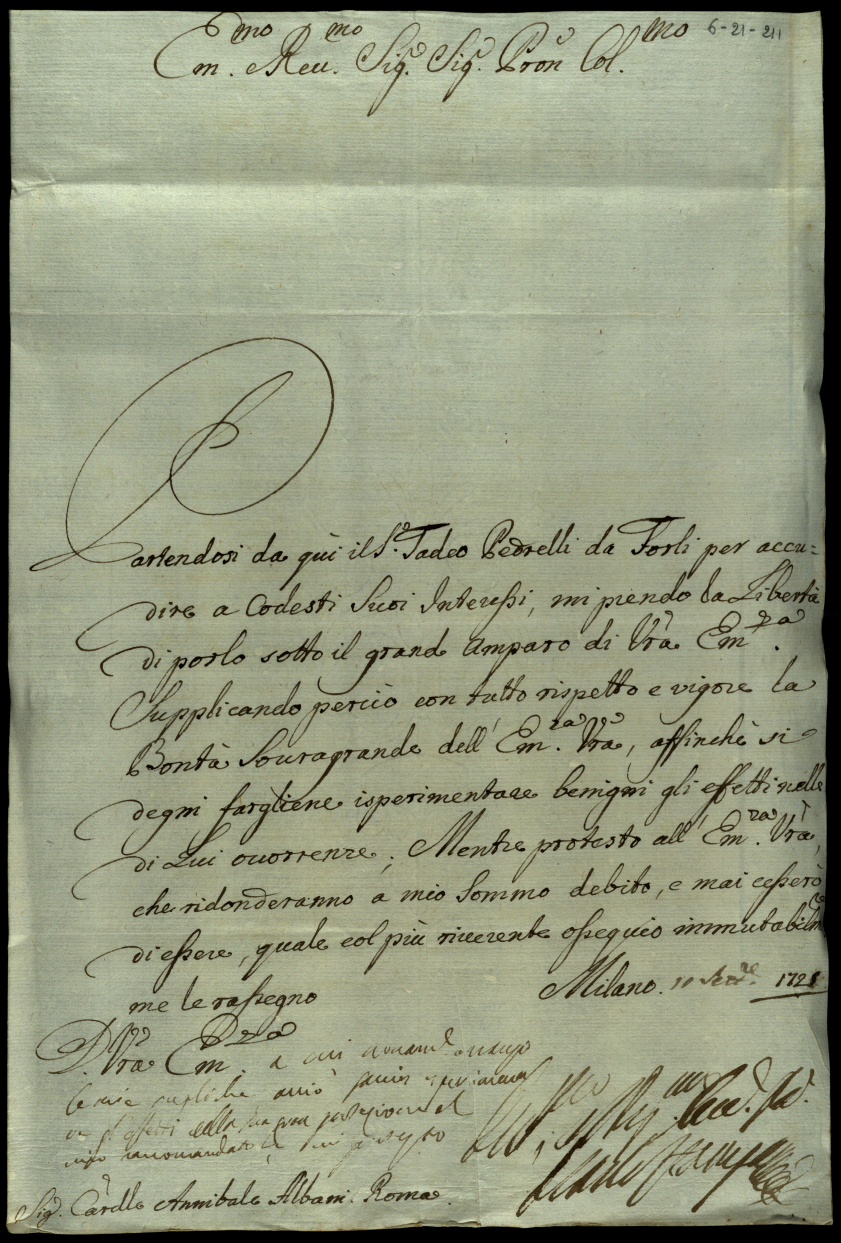 6-21-211
Em.mo Reu.mo Sig.r Sig.r Pron Col.mo
Partendosi da quì il S.r Tadeo Pedrelli da Forli per accu=
dire a Codesti Suoi Interessi, mi prendo la Libertà
di porlo sotto il grande Amparo di Vrã Em.za
Supplicando perciò con tutto rispetto e vigore la
Bontà Souragrande dell' Em.za Vrã, affinchè si
degni fargliene isperimentare benigni gli effetti nelle
di Lui ocorrenze; Mentre protesto all' Em.za Vrã,
che ridonderanno a mio Sommo debito, e mai cesserò
di essere, quale col più riuerente ossequio immutabilm.e
me le rassegno Milano. 1721
D. Vrã Em.za a cui
le mie supliche acciò
effetti della sua
raccomandato
Carlo
Sig.r Cardle Annibale Albani. Roma.